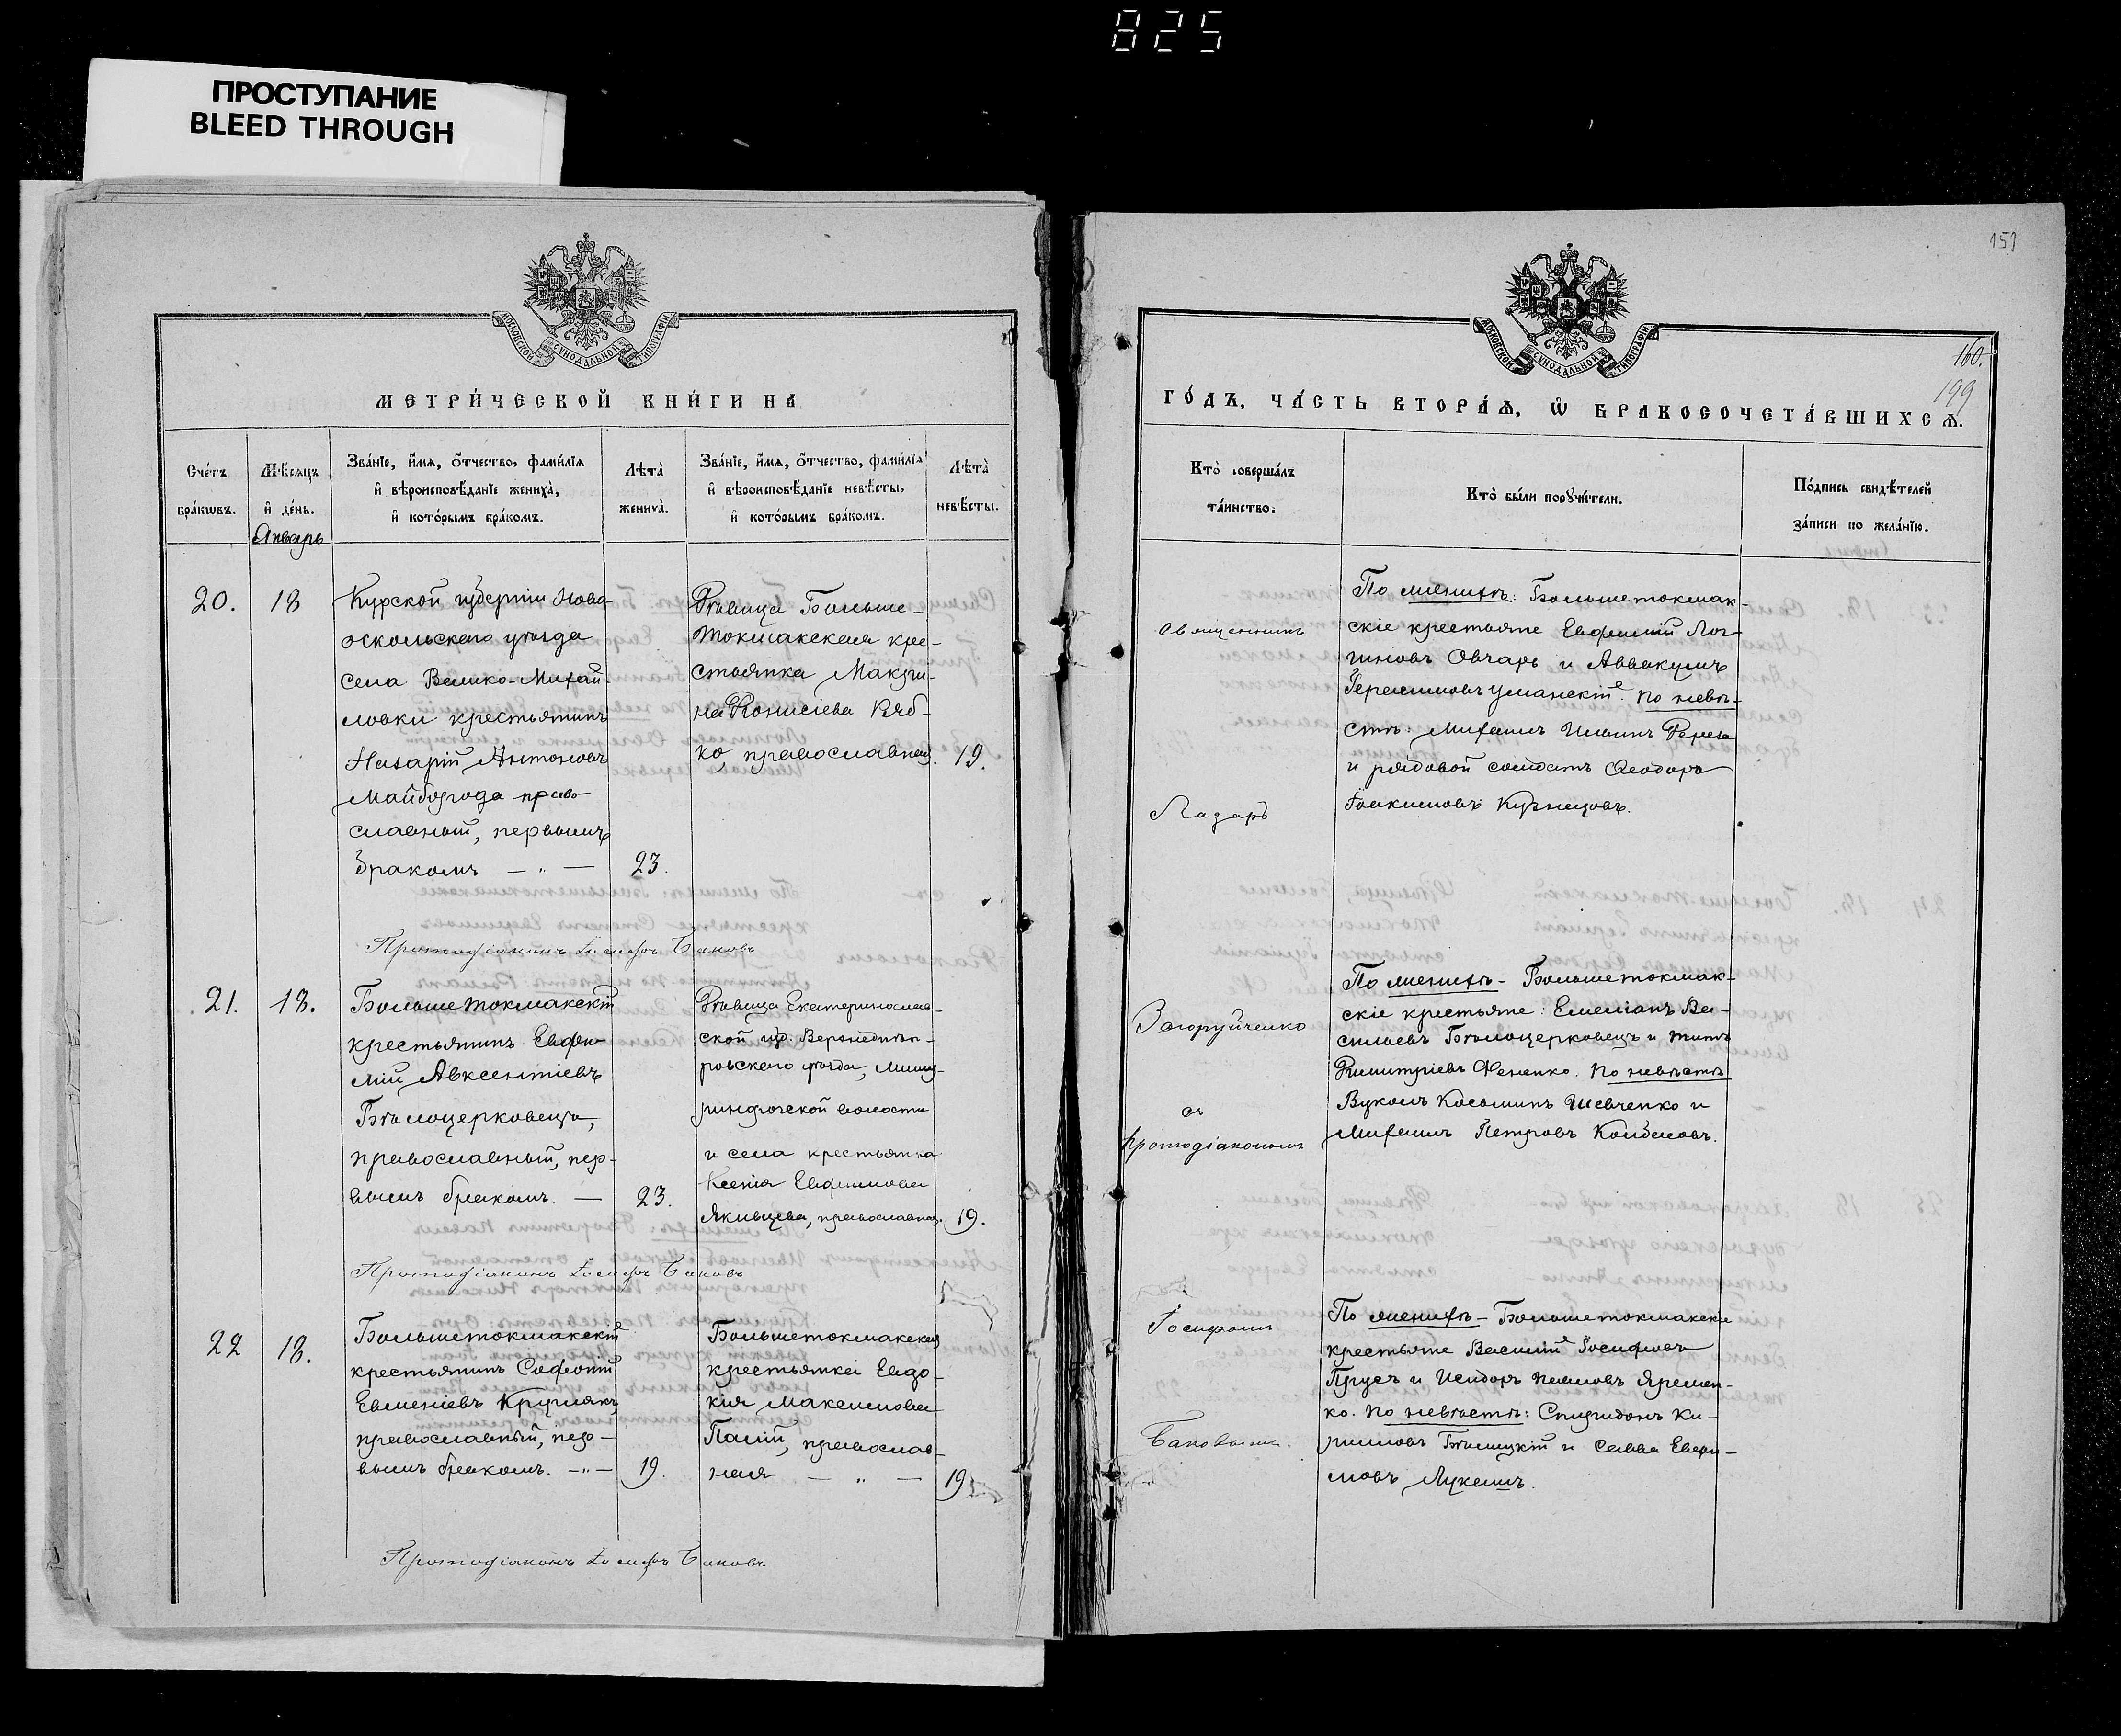 825
ПРОСТУПАНИЕ
BLEED THROUGH
МОСКОВСКОЙ СѴНОДАЛЬНОЙ ТИПОГРАФІИ
МЕТРИ́ЧЕСКОЙ КНИ́ГИ НА
Сче́тъ бра́кѡвъ.
Мѣ́сяцъ и҆ де́нь.
Январь
Зва́нїе, и҆́мѧ, ѻ҆́тчество, фами́лїѧ
и҆ вѣроисповѣ́данїе жениха̀,
и҆ кото́рымъ бра́комъ.
Лѣта̀ жениха̀.
Зва́нїе, и҆́мѧ, ѻ҆́тчество, фами́лїѧ
и҆ вѣроисповѣ́данїе невѣ́сты,
и҆ кото́рымъ бра́комъ.
Лѣта̀ невѣ́сты.
20.
18
Курской губерніи Ново-
оскольскаго уѣзда
села Велико-Михай-
ловки крестьянинъ
Назарій Антоновъ
Майборода право-
славный, первымъ
бракомъ — „ —
23.
Дѣвица Больше-
Токмакская кре-
стьянка Макри-
на Діонисіева Ряб-
ко, православная.
19.
Протодіаконъ Іосифъ Баковъ
21.
18.
Больше Токмакскій
крестьянинъ Евфи-
мій Авксентіевъ
Бѣлоцерковецъ,
православный, пер-
вымъ бракомъ. —
23.
Дѣвица Екатеринослав-
ской губ. Верхнеднѣп-
ровскаго уѣзда,
волости
и села крестьянка
Ксенія Евфимова
Якивцева, православная.
19.
Протодіаконъ Іосифъ Баковъ
22
18.
Большетокмакскій
крестьянинъ Софоній
Евменіевъ Кругляк
православный, пер-
вымъ бракомъ. — „ —
19.
Большетокмакская
крестьянка Евдо-
кия Максимова
Палій, православ-
ная — „ —
19
Протодіаконъ Іосифъ Баковъ
151
МОСКОВСКОЙ СѴНОДАЛЬНОЙ ТИПОГРАФІИ
160.
199
ГО́ДЪ, ЧА́СТЬ ВТОРА́Ѧ, Ѽ БРАКОСОЧЕТА́ВШИХСѦ.
Кто̀ соверша́лъ
та́инство.
Кто̀ бы́ли порꙋчи́тели.
По́дпись свидѣ́телей
за́писи по жела́нїю.
Священникъ
Лазарь
Загоруйченко
съ
протодіакономъ
Іосифомъ
Баковымъ.
По женихѣ: Большетокмак-
скіе крестьяне Евфимій Лог-
гиновъ Овчарь и Аввакумъ
Герасимовъ Уманскій. По невѣ-
стѣ: Михаилъ Ивинъ
и рядовой солдатъ Ѳеодоръ
Іоакимовъ Кузнецовъ.
По женихѣ - Большетокмак-
скіе крестьяне: Емеліанъ Ва-
сильевъ Бѣлоцерковецъ и Титъ
Димитріевъ Фененко. По невѣстѣ
Вуколъ Косьминъ Шевченко и
Михаилъ Петровъ
По женихѣ - Большетокмакскіе
крестьяне Василій Іосифовъ
Прусъ и Исидоръ Павловъ Яремен-
ко. По невѣстѣ: Спиридонъ Ки-
рилловъ Бѣлицкій и Савва Евфи-
мовъ Лукашъ.